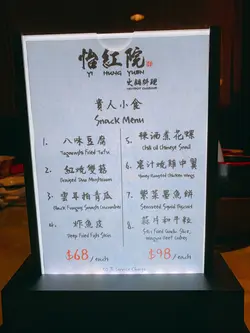 怡紅院
YI HUNG YUEN
火鍋料理
HOT POT CUISINE
貴人小食
Snack Menu
1. 八味豆腐
Tagarashi Fried Tofu
2. 紅燒雙菇
3. 雲耳拍青瓜
Black Fungus, Smash Cucumber
4. 炸魚皮
Deep Fried Fish Skin
$68 /each
5. 辣酒煮花螺
Chili Oil Chinese Snail
6. 蜜汁燒雞中翼
Honey Roasted Chicken Wings
7. 紫菜墨魚餅
Seaweed Squid Biscuit
8. 蒜片和牛粒
Stir Fried Garlic Slice, Wagyu Beef Cubes
$98 /each
10% Service Charge